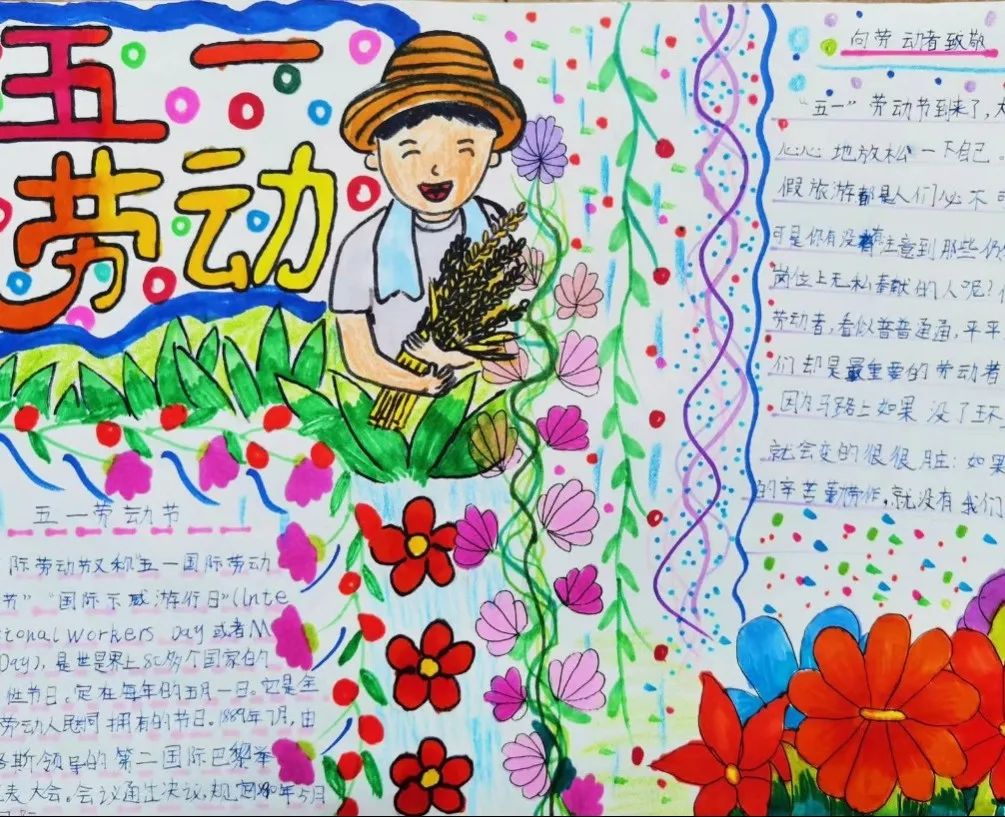 五一
劳动
五一劳动节
际劳动节又称"五一国际劳动
节""国际示威游行日"(Inte
ational workers Day 或者M
Day), 是世界上80多个国家的
性节日。定在每年的五月一日。它是全
劳动人民共同拥有的节日。1889年7月,由
格斯领导的第二国际巴黎举
表大会。会议通过决议,规定1890年5月
向劳动者致敬
"五一"劳动节到来了,大
心心地放松一下自己
假旅游都是人们必不
可是你有没有注意到那些
岗位上无私奉献的人呢?
劳动者,看似普普通通,平平
们却是最重要的劳动者
因为马路上如果没了
就会变的很很脏;如果
的辛苦勤劳作,就没有我们